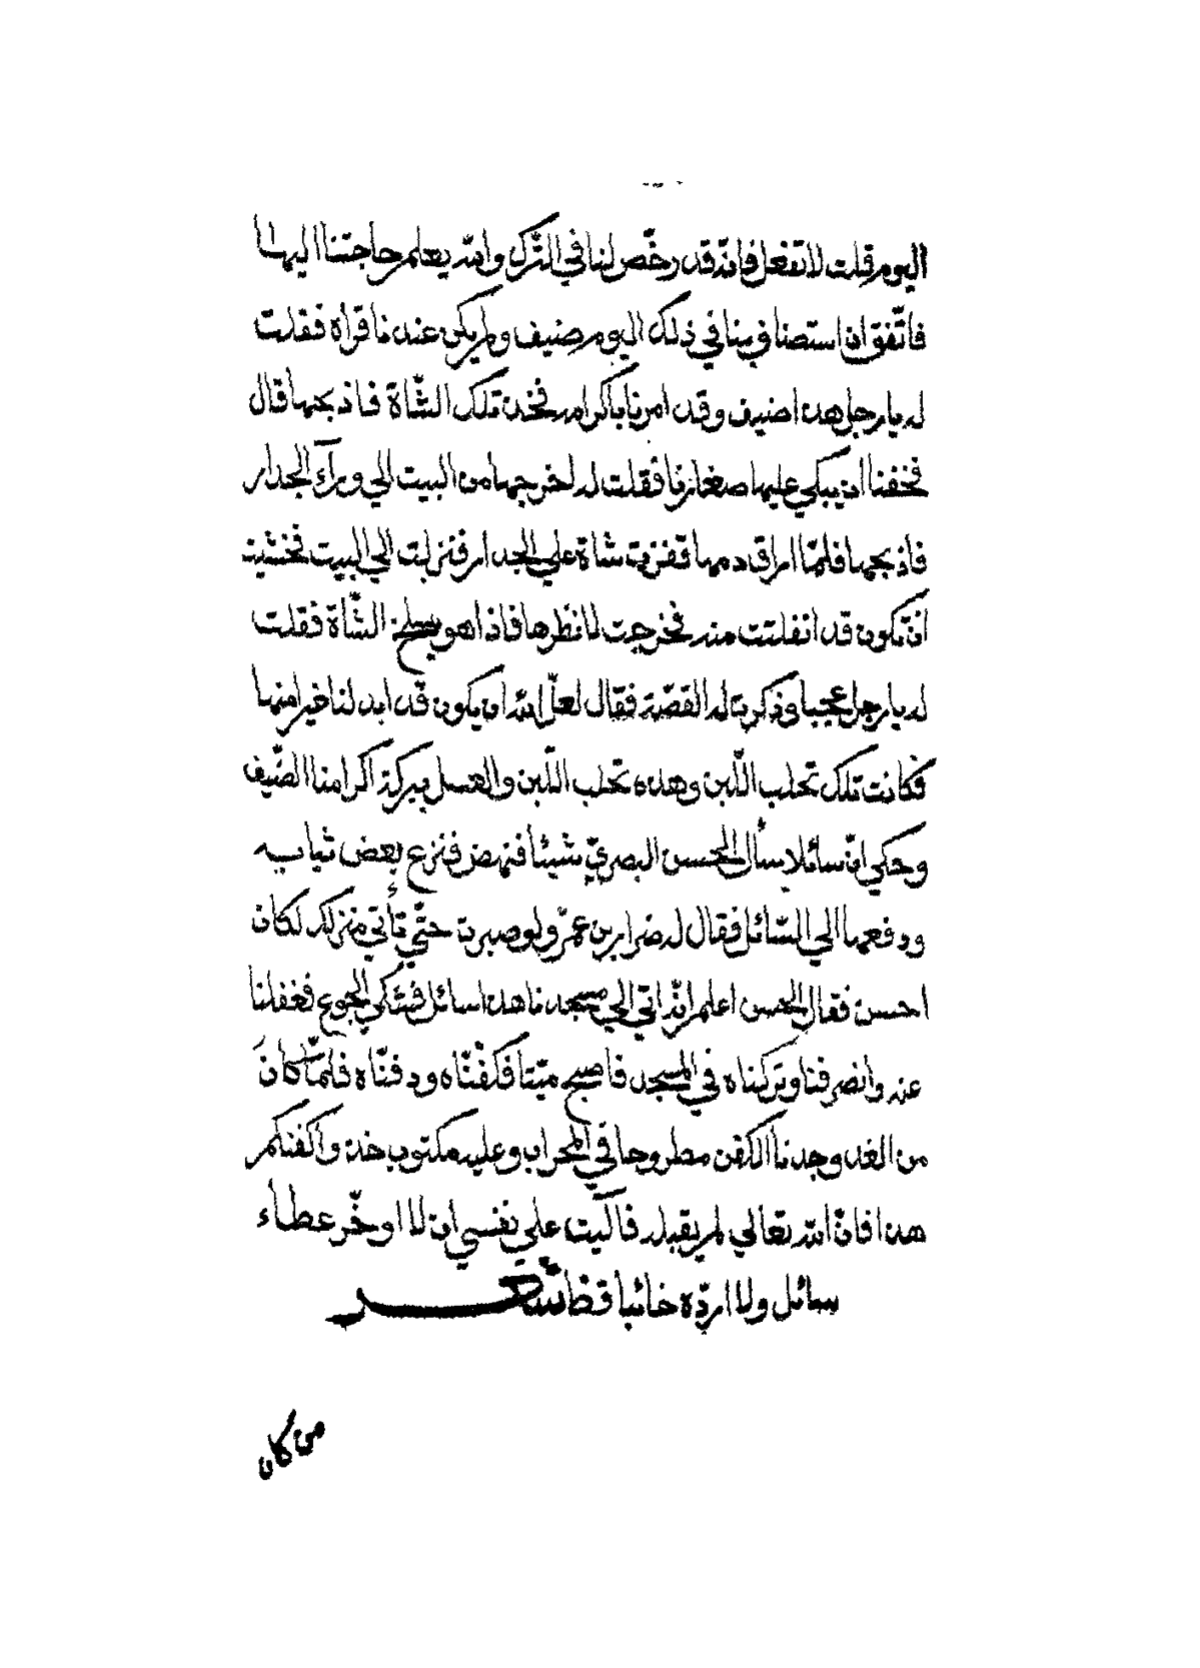 اليوم قلت لا تفعل فانّه قد رخّص لنا في التّرك والله يعلم حاجتنا اليها
فاتّفق ان استضافينا في ذلك اليوم ضيف ولم يكن عندنا قراه فقلت
له يا رجل هذا ضيف وقد امرنا باكرامه فخذ تلك الشّاة فاذبحها قال
فخفنا ان يبكي عليها صغارنا فقلت له اخرجها من البيت الي ورآء الجدار
فاذبحها فلمّا اراق دمها قفزت شاة علي الجدار فنزلت الي البيت فخشيت
ان تكون قد انفلتت منه فخرجت لانظرها فاذا هو يسلخ الشّاة فقلت
له يا رجل عجبا وذكرت له القصّة فقال لعلّ الله ان يكون قد ابدلنا خيرا منها
فكانت تلك تحلب اللّبن وهذه تحلب اللّبن والعسل ببركة اكرامنا الضّيف
وحكي انّ سائلا يسأل الحسن البصريّ شيئا فنهض فنزع بعض ثيابه
ودفعها الي السّائل فقال له ضرار بن عمرو لو صبرت حتّي تأتي منزلك لكان
احسن فقال الحسن اعلم انّه اتي الي مسجدنا هذا سائل فشكي الجوع فغفلنا
عنه وانصرفنا وتركناه في المسجد فاصبح ميّتا فكفّنّاه ودفنّاه فلمّا كان
من الغد وجدنا الكفن مطروحا في المحراب وعليه مكتوب خذوا كفنكم
هذا فانّ الله تعالي لم يقبله فآليت علي نفسي ان لا اوخّر عطاء
سائل ولا اردّه خائبا قط
من كان